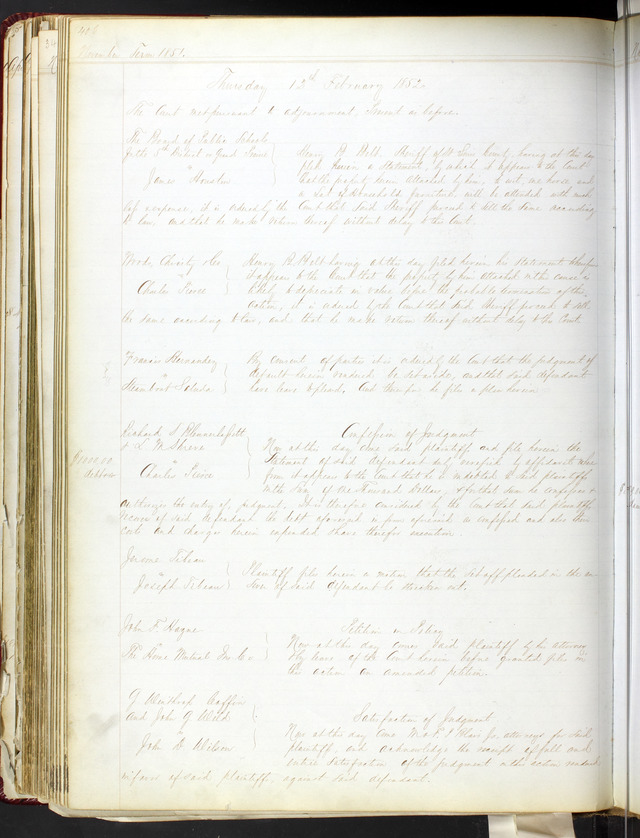 November Term 1851.
Thursday 12th February 1852
The Court met pursuant to adjournment, Present as before.
The Board of Public Schools
vs
James Houston
Henry B. Belt, Sheriff of St Louis County, having at this day
filed herein a Statement, by which it appears to the Court
of expense, it is ordered by the Court that said Sheriff proceed to sell the same according
to law and that he make return thereof without delay to the Court.
Wood, Christy & Co
vs
Charles Pierce
Henry B. Belt having at this day filed herein his Statement
it appears to the Court that the property by him attached in this cause is
likely to depreciate in value before the probable termination of the
action, it is ordered by the Court that said Sheriff proceed to sell
the same according to law, and that he make return thereof without delay to the Court
Francis Hernandez
vs
Steam boat
By consent of parties it is ordered by the Court that the judgment of
default herein rendered be set aside, and that said defendant
have leave to plead, and therefore he files a plea herein
$1000.00
Richard S. Blennerhassett
vs
Charles Pierce
Confession of Judgment
Now at this day come said plaintiffs and file herein the
Statement of said defendant duly verified by affidavit
from it appears to the Court that he is indebted to said plaintiffs
in the sum of One Thousand Dollars, & for that sum he confesses &
authorizes the entry of judgment. It is therefore considered by the Court that said plaintiffs
recover of said defendant the debt aforesaid in form aforesaid confessed and also their
costs and charges herein expended & have therefor execution.
vs
Joseph
Plaintiff files herein a motion that the set off pleaded in the
of said defendant be stricken out.
John F. Hague
vs
The Home Mutual Ins Co
Petition on Policy
Now at this day comes said plaintiff by his attorney
& by leave of the Court herein before granted files in
this action an amended petition.
G. Winthrop Coffin
and John G. Weld
vs
John D. Wilson
Satisfaction of Judgment
Now at this day come attorneys for said
plaintiffs, and acknowledge the receipt of full and
entire satisfaction of the judgment in this action rendered
in favor of said plaintiffs, against said defendant.